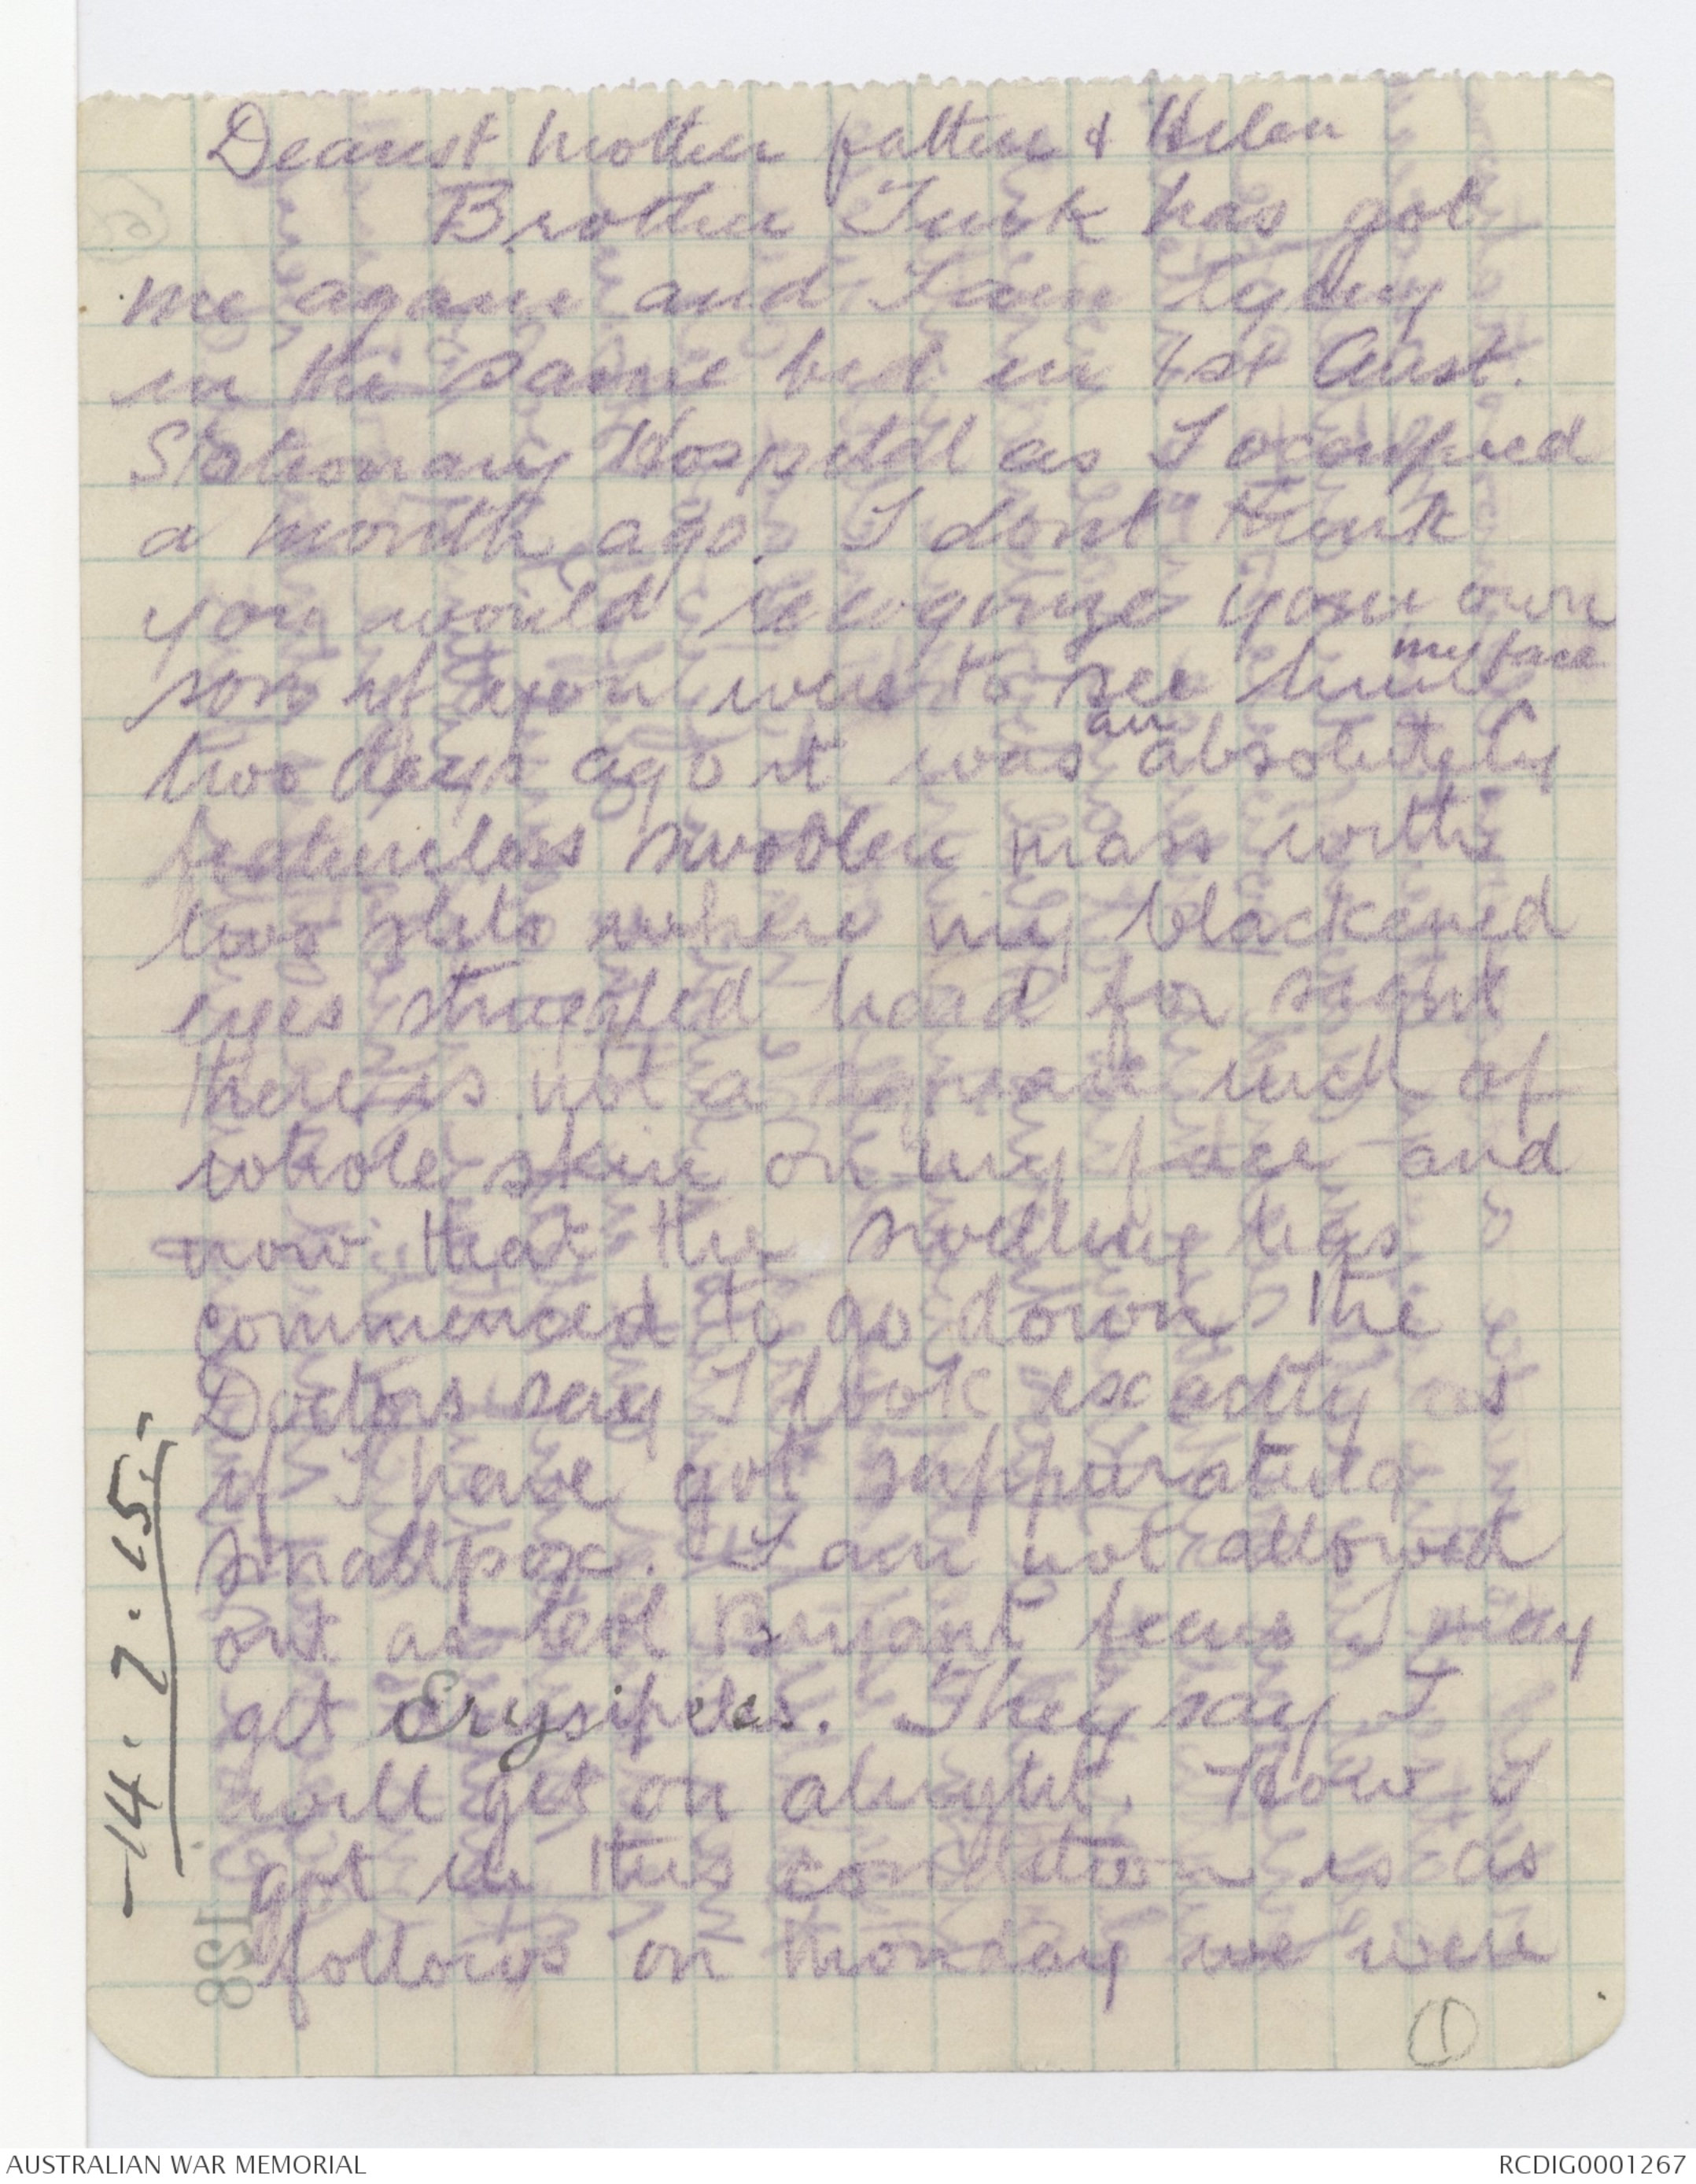 Dearest Mother father & Helen
Brother Turk has got
me again and I am lying
in the same bed in 1st Aust.
Stationary Hospital as I occupied
a month ago. I dont think
you would recognize your own
son if you were to see him my face
two days ago it was an absolutely
featureless swollen mass with
two slits where my blackened
eyes struggled hard for sight
there is not a square inch of
whole skin on my face and
now that the swelling has
commenced to go down the
Doctors say I look exactly as
if I have got suppurating
smallpox. I am not allowed
out as Col Bryant fears I may
get Erysipelas. They say I
will get on alright. How I
got in this condition is as
follows on Monday we were
14.7.15.
128
1
AUSTRALIAN WAR MEMORIAL
RCDIG0001267